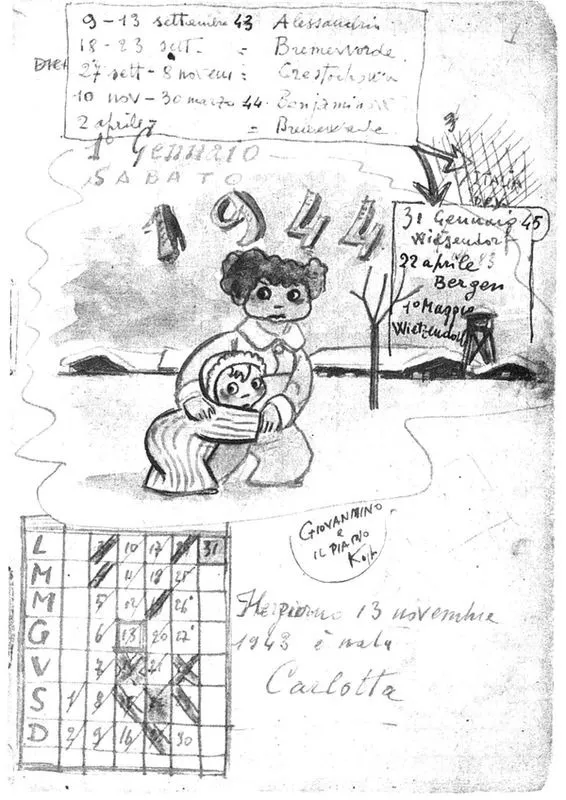 9 – 13 settembre 43 Alessandria
18 – 23 sett. = Bremervorde
27 sett – 8 novem = Czestochowa
10 nov – 30 marzo 44 Benjaminow
2 aprile = Bremervorde
1° Gennaio
SABATO
1944
3
ITALIA
31 Gennaio 45
Wietzendorf
22 aprile
Bergen
1° Maggio
Wietzendorf
GIOVANNINO
e
IL PIANO
L 3 10 17 31
M 11 18 25
M 5 12 26
G 6 13 20 27
V 7 21
S 1 8
D 2 9 16 30
13 novembre
1943 è nata
Carlotta